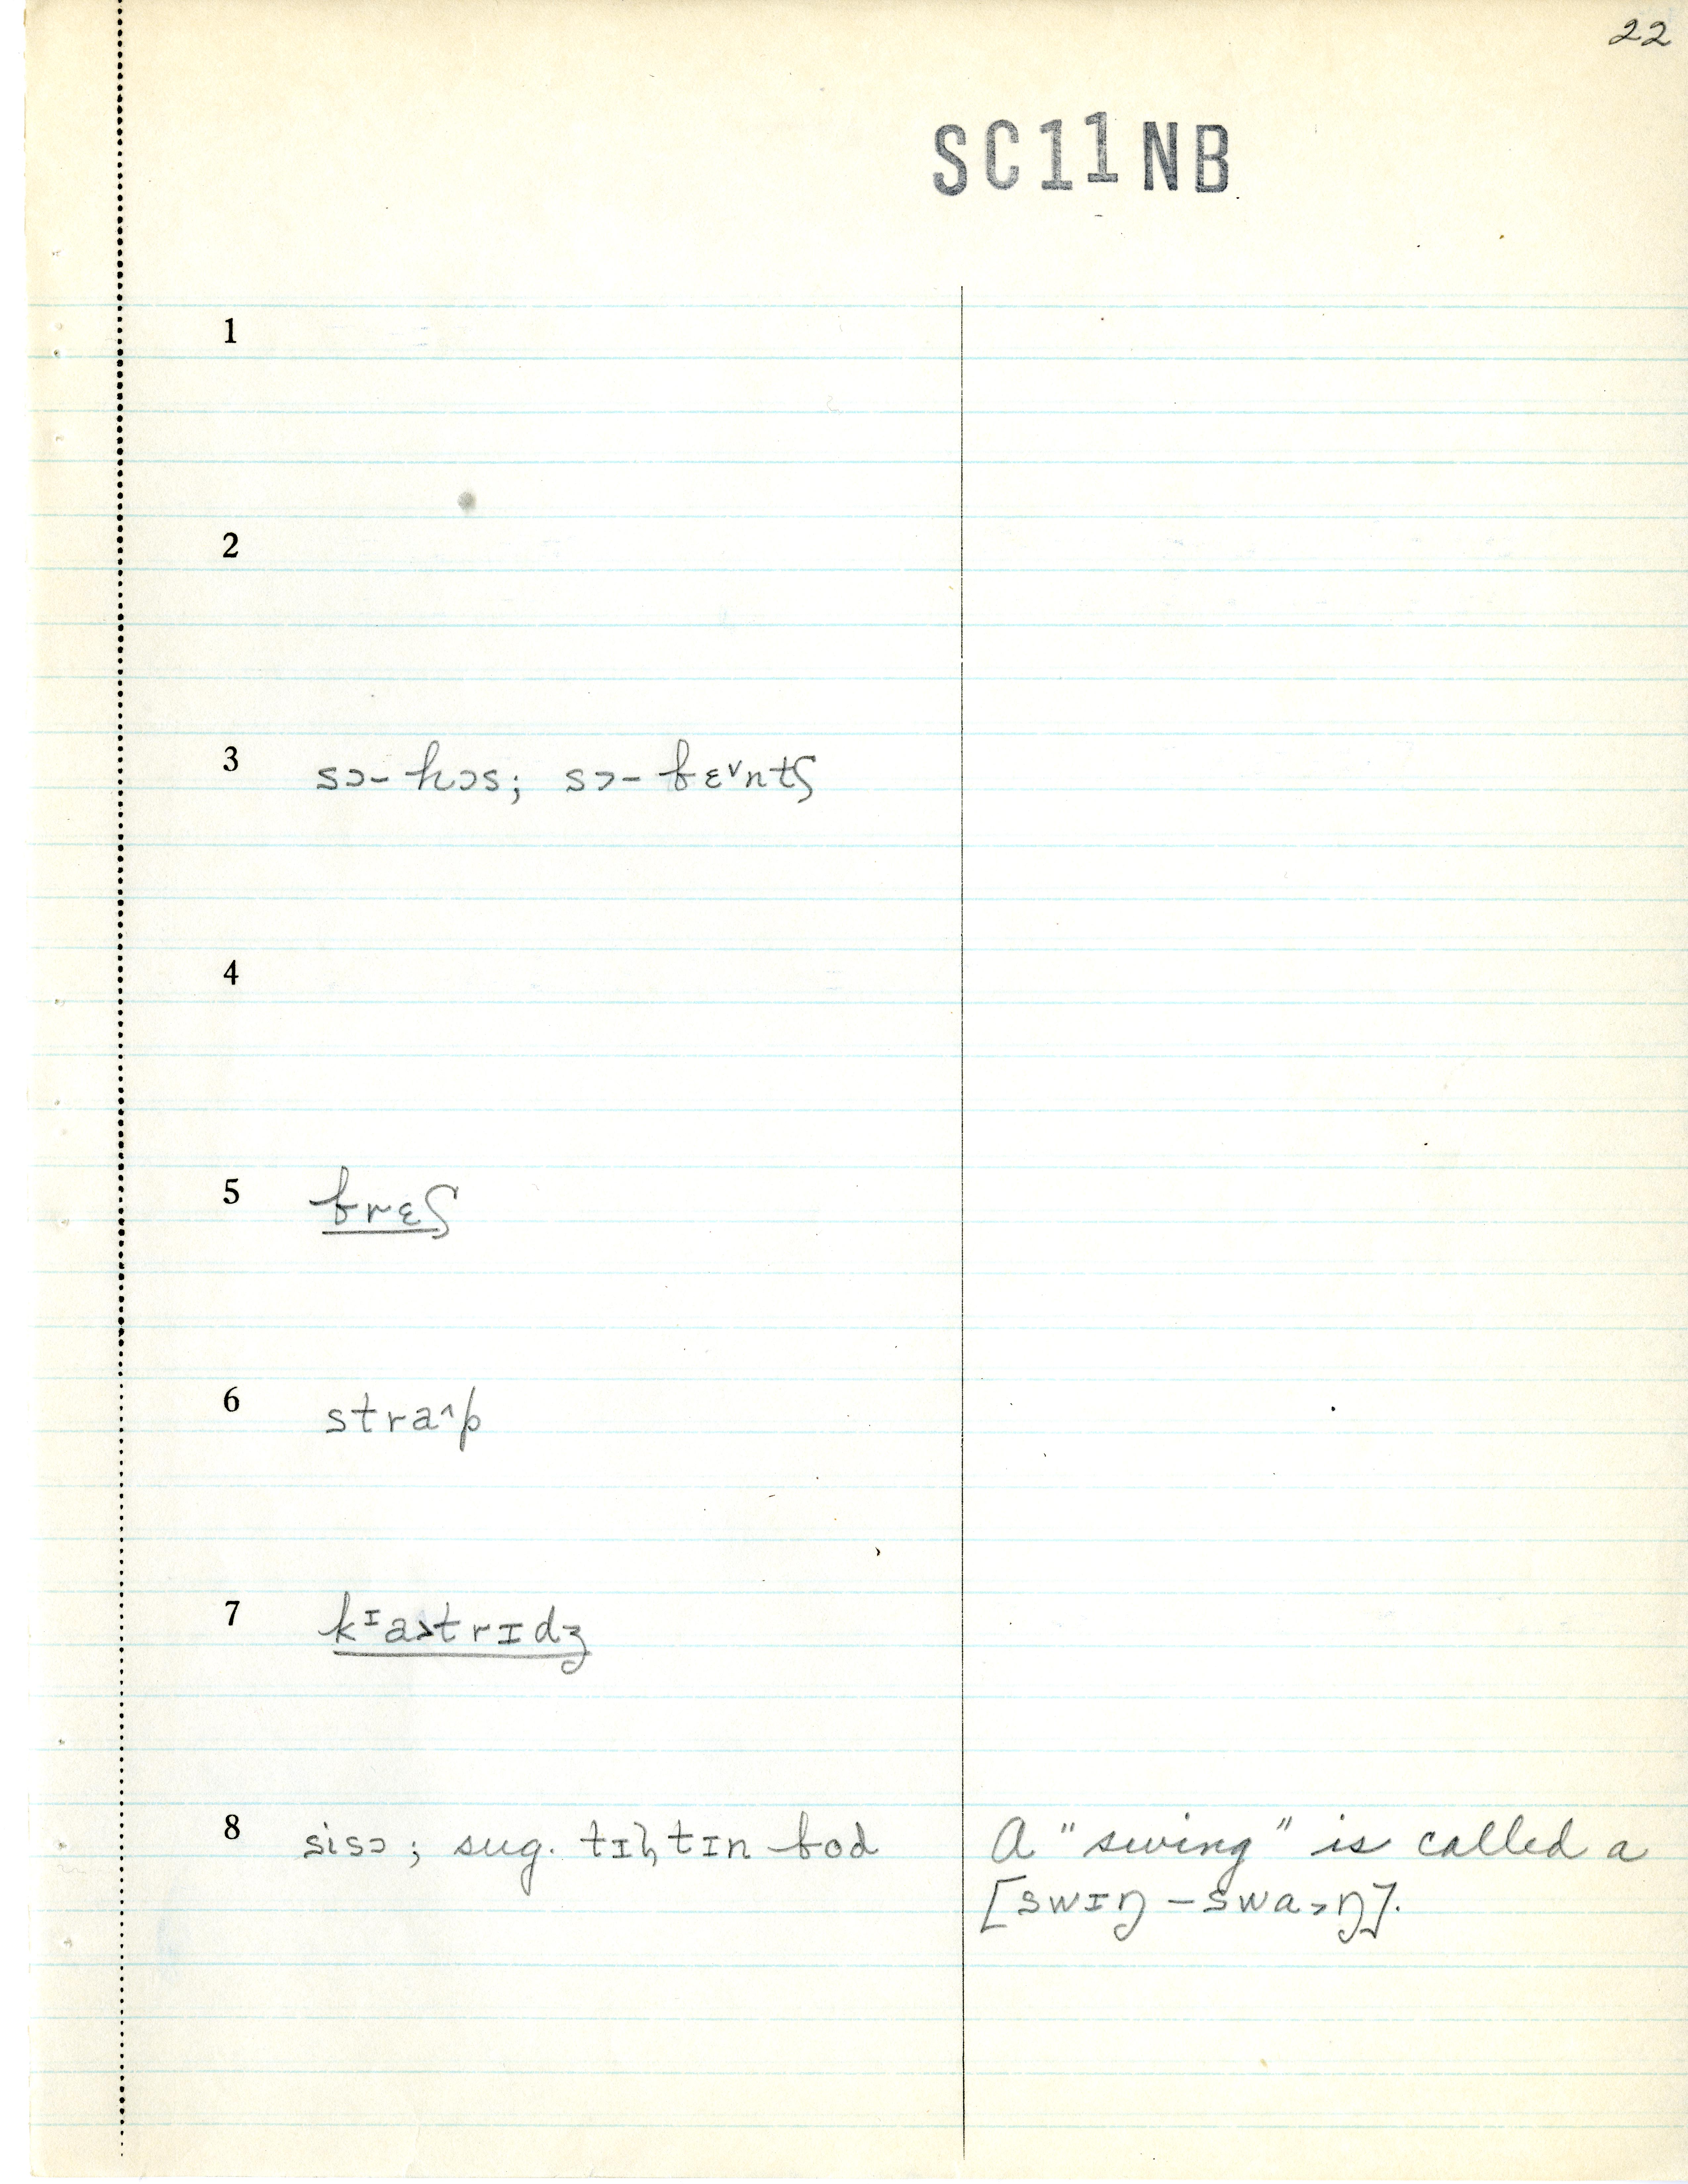 22
SC11NB
1
2
3 sɔ-hɔs; sɔ-bɛ˅ntʃ
4
5 brɛʃ
6 stra^p
7 kᶦa>trɪdʒ
8 sisɔ; sug. tɪltɪn bod
A "swing" is called a
[swɪŋ-swa>ŋ].